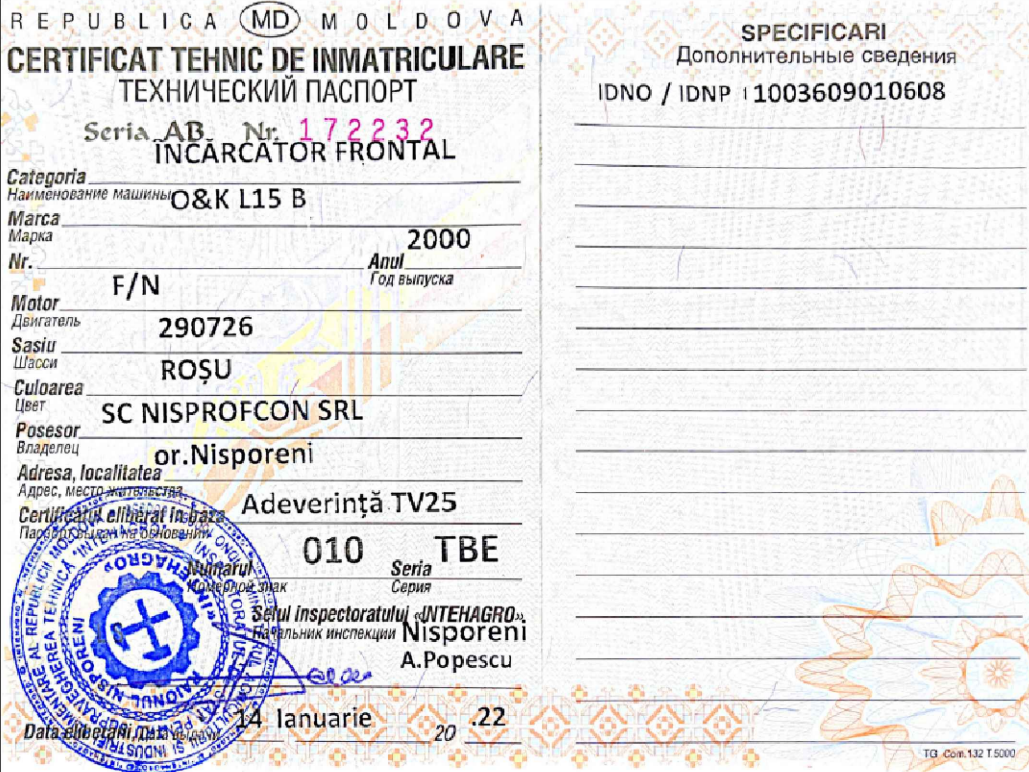 REPUBLICA MD MOLDOVA
CERTIFICAT TEHNIC DE INMATRICULARE
ТЕХНИЧЕСКИЙ ПАСПОРТ
Seria AB Nr. 172232
ÎNCĂRCĂTOR FRONTAL
Categoria
Наименование машины
O&K L15 B
Marca
Марка
2000
Nr. Anul
Год выпуска
F/N
Motor
Двигатель
290726
Sasiu
Шасси
ROȘU
Culoarea
Цвет
SC NISPROFCON SRL
Posesor
Владелец
or.Nisporeni
Adresa, localitatea
Адрес, место жительства
Adeverință TV25
Certificatul eliberat in baza
Паспорт выдан на основании
010 TBE
Numarul Seria
Номерной знак Серия
Seful inspectoratului «INTEHAGRO»
Начальник инспекции Nisporeni
A.Popescu
14 Ianuarie .22
Data eliberarii 20
RAIONUL NISPORENI
SPECIFICARI
Дополнительные сведения
IDNO / IDNP 1003609010608
TG Com.132 T.5000